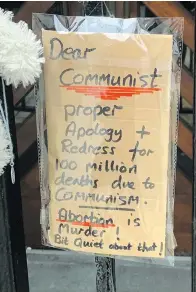 Dear
Communist
proper
Apology +
Redress for
100 million
deaths due to
COMMUNISM.
Abortion is
Murder!
Bit Quiet about that!